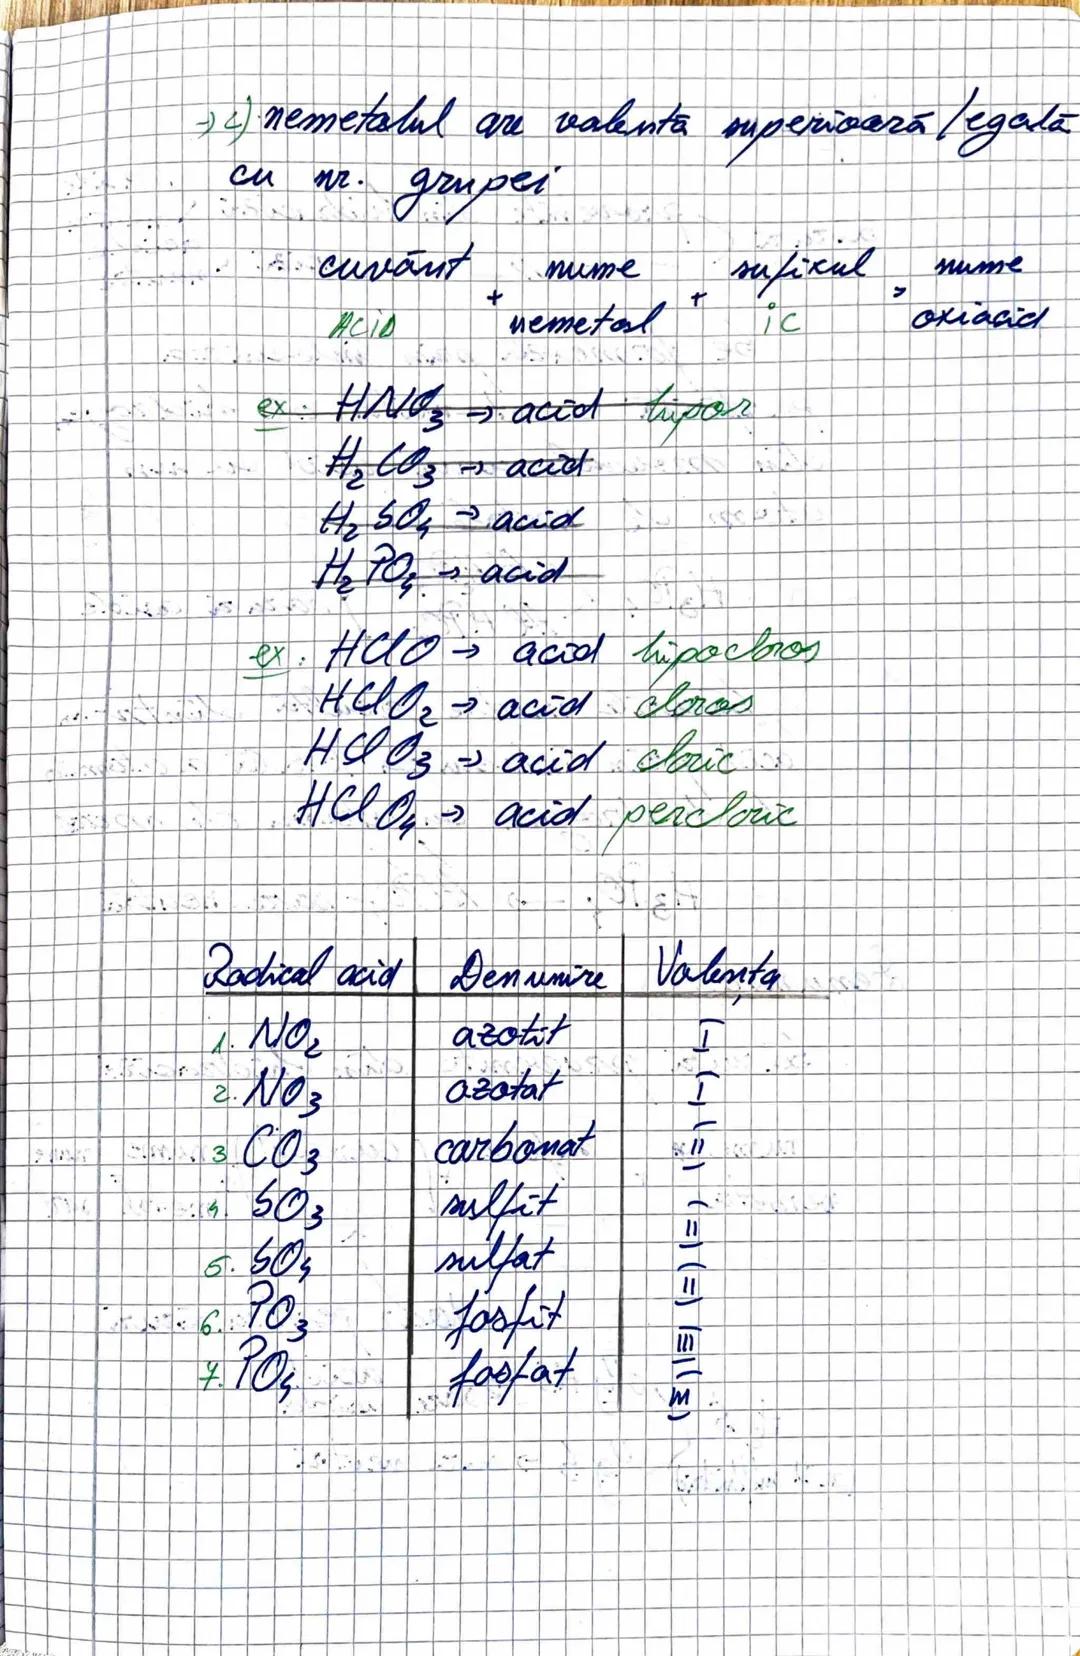 → c) nemetalul are valentă superioară / egală
cu nr. grupei
cuvânt + nume + sufixul = nume
ACID nemetal ic oxiacid
ex: HNO3 → acid hipor
H2CO3 → acid
H2SO4 → acid
H2PO4 → acid
ex: HClO → acid hipocloros
HClO2 → acid cloros
HClO3 → acid cloric
HClO4 → acid percloric
Radical acid Denumire Valența
1. NO2 azotit I
2. NO3 azotat I
3 CO3 carbonat II
4. SO3 sulfit II
5. SO4 sulfat II
6. PO3 fosfit III
7. PO4 fosfat III